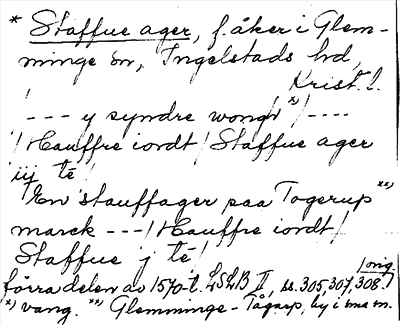 * Staffue ager, f. åker i Glem-
minge sn, Ingelstads hd,
Krist. l.
/--- y syndre wong *)/----
/Hauffre iordt/ Staffue ager
iij te
/En stauffager paa Togerup **)
marck ---/ Hauffre iordt/
Staffue j te/
/orig.
förra delen av 1570-t. LSLB II, ss. 305, 307, 308./
*) vang. **) Glemminge-Tågarp, by i sma sn.